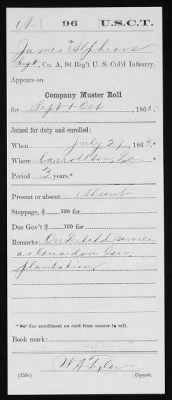 A | 96 | U.S.C.T.
James Alphons
Sergt., Co. A, 96 Reg't U. S. Col'd Infantry.
Appears on
Company Muster Roll
for Sept & Oct, 186
Joined for duty and enrolled:
When July 27, 1863.
Where Carrollton, La
Period 3 years.*
Present or absent Absent
Stoppage, $ 100 for
Due Gov't $ 100 for
Remarks: On Detached service
as Guard on Gov
plantation
*See enrollment on card from muster-in roll.
Book mark:
(358c) Copyist.